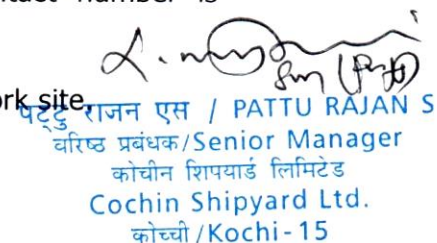 ntact number is
ork site,
पट्टु राजन एस / PATTU RAJAN S
वरिष्ठ प्रबंधक/Senior Manager
कोचीन शिपयार्ड लिमिटेड
Cochin Shipyard Ltd.
कोच्ची/Kochi-15